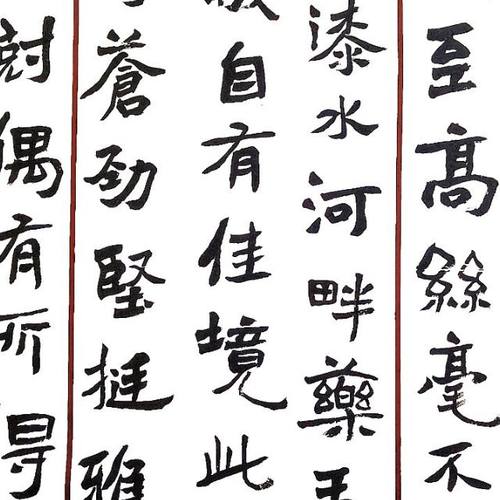 至高絲毫不
漆水河畔藥王
自有佳境此
蒼勁堅挺雅
對偶有所得